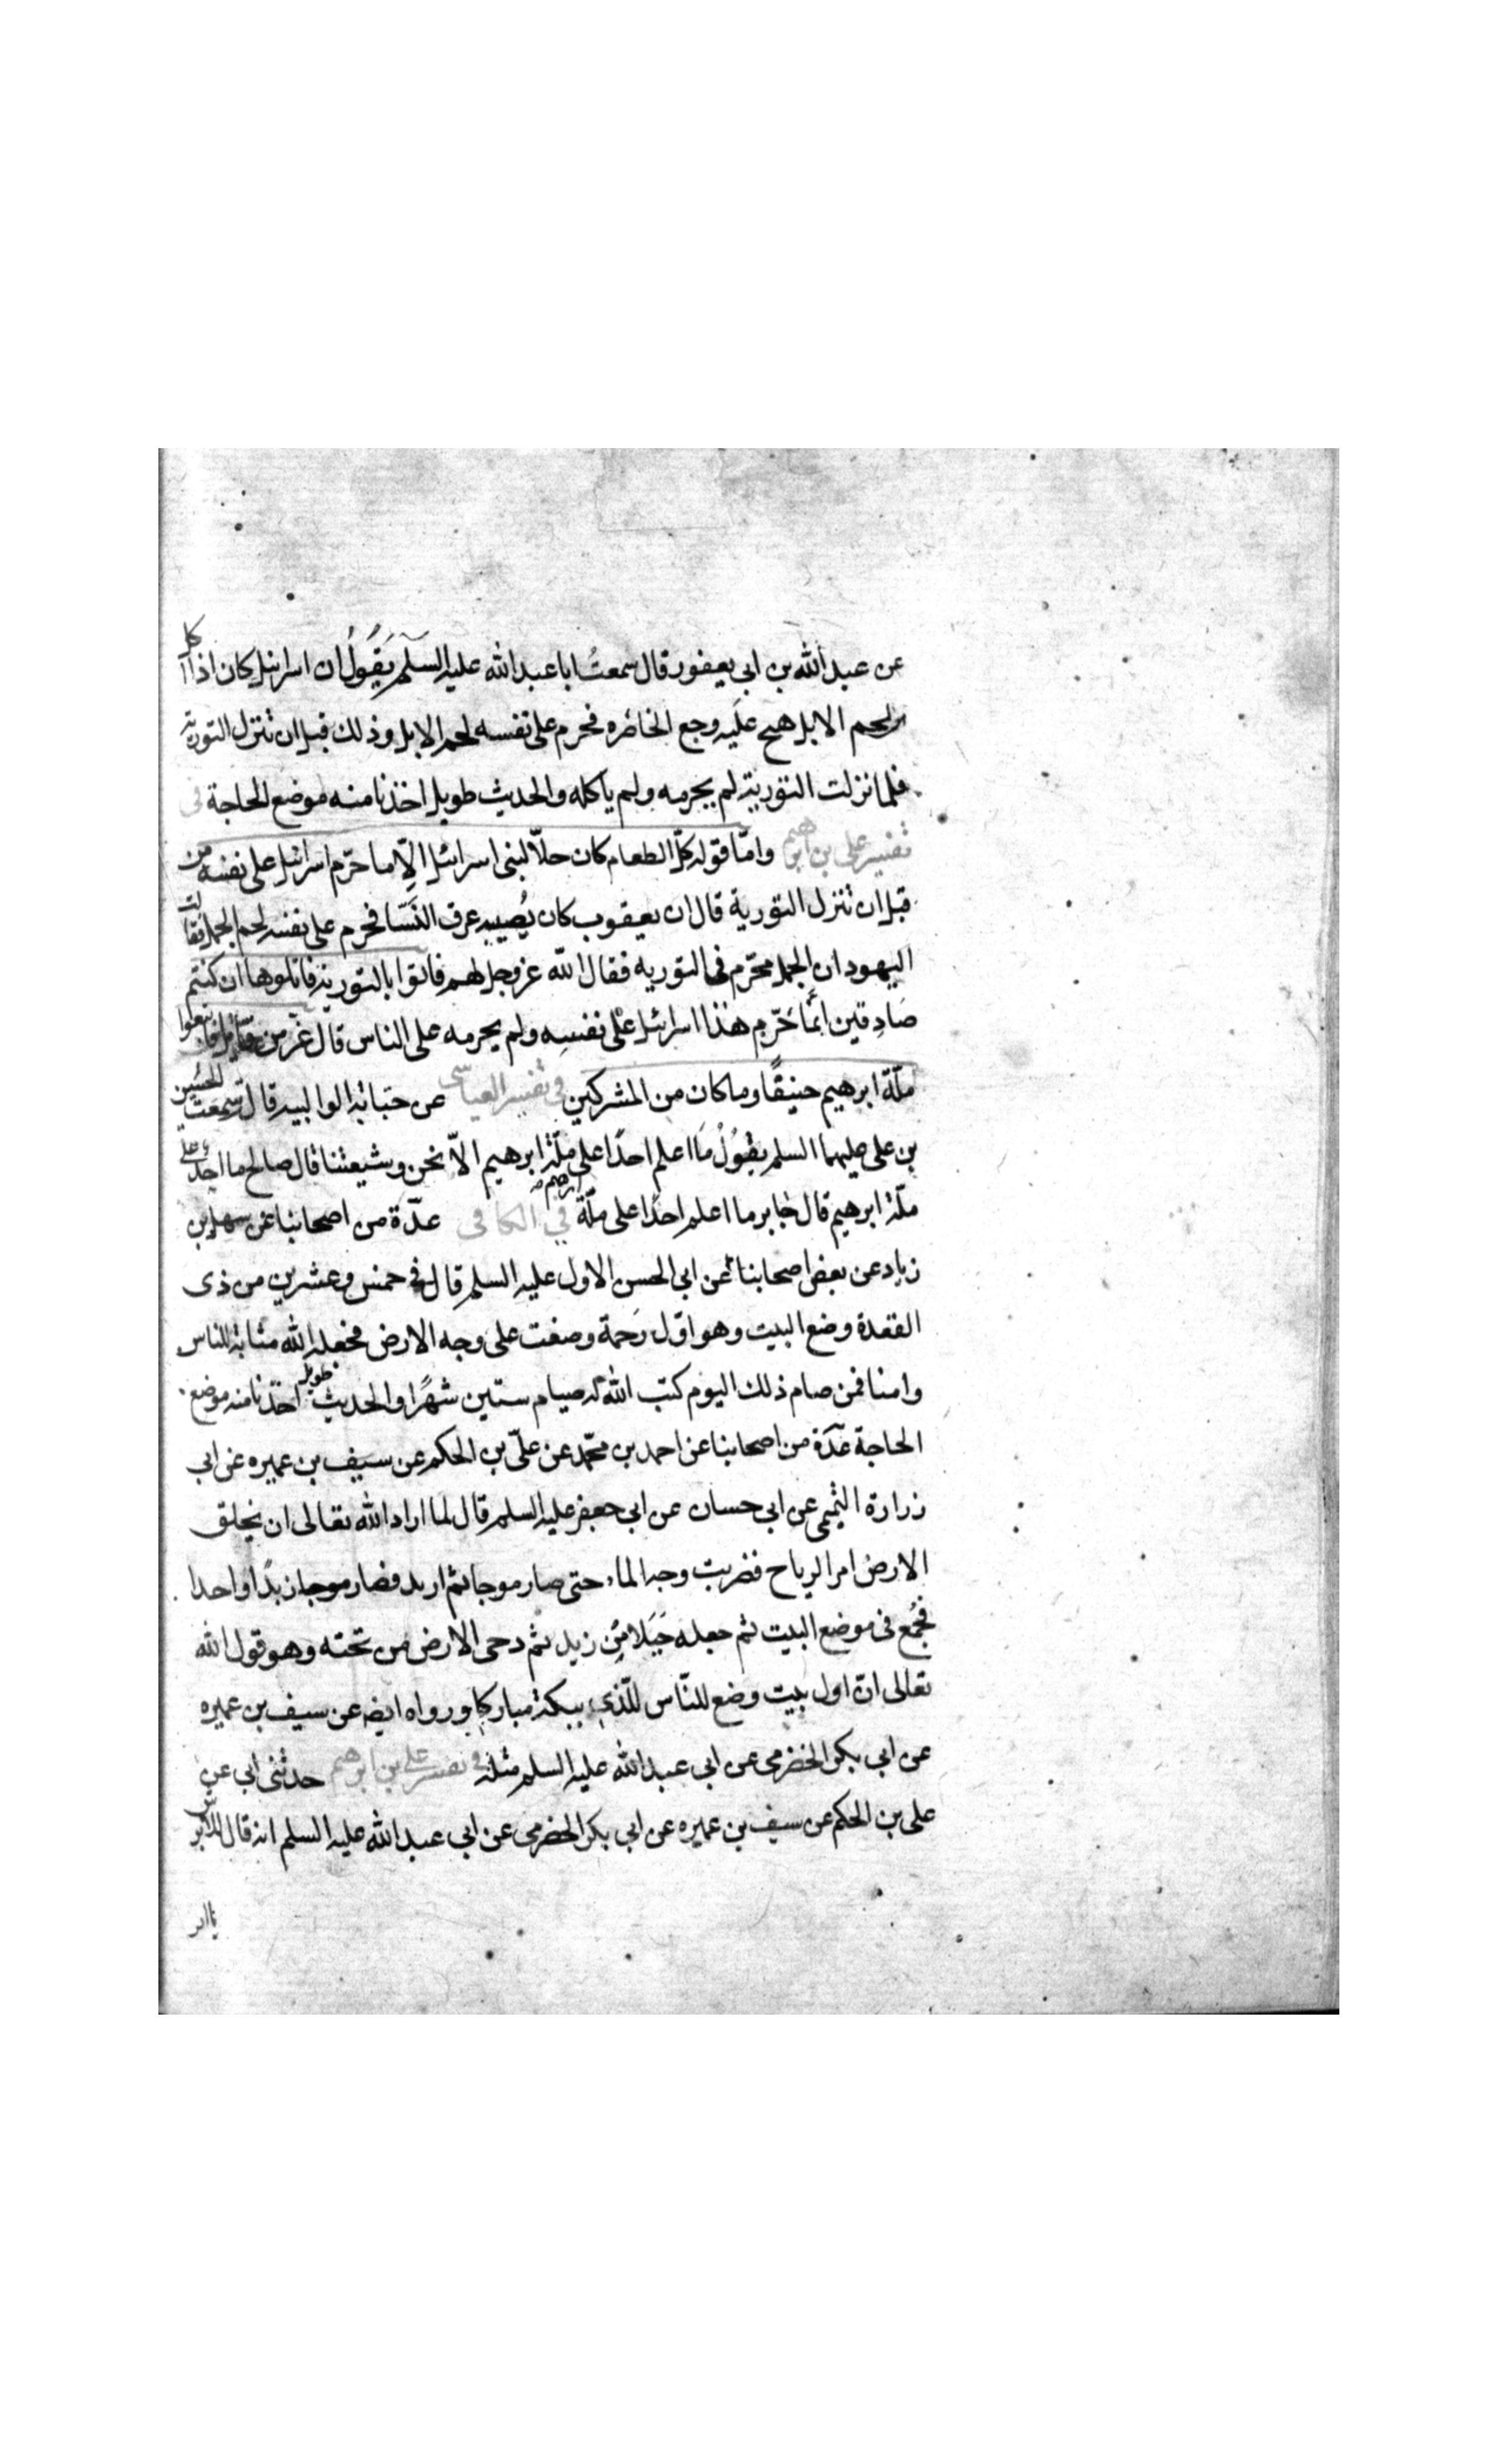 عن عبد الله بن ابى يعفور قال سمعتُ ابا عبد الله عليه السلم يَقُولُ ان اسرائيل كان اذا اكل
لحم الابل هيج عليه وجع الخاصره فحرم على نفسه لحم الابل وذلك قبل ان تنزل التورية
فلما نزلت التورية لم يحرمه ولم ياكله والحديث طويل اخذنا منه موضع الحاجة فى
تفسير على بن ابرهيم واما قوله كلّ الطعام كان حلّا لبنى اسرائيل الّا ما حرّم اسرائيل على نفسه من
قبل ان تنزل التورية قال ان يعقوب كان يُصيبه عرق النَّسا فحرم على نفسه لحم الجمل فقالت
اليهود ان الجمل محرّم فى التورية فقال الله عزوجل لهم فاتوا بالتورية فاتلوها ان كنتم
صَادِقين انّما حَرّم هذا اسرائيل على نفسِه ولم يحرمه على الناس قال عزّ من قائل فاتبعوا
ملّة ابرهيم حنيفًا وما كان من المشركين فى تفسير العياشى عن حبابة الوالبيه قال سمعت الحسين
بن على عليهما السلم يقُولُ مَا اعلم احدًا على ملّة ابرهيم الّا نحن وشيعتنا قال صالح ما احد على
ملّة ابرهيم قال جابر ما اعلم احدًا على ملّة ابرهيم فى الكافى عدّة من اصحابنا عن سهل بن
زياد عن بعض اصحابنا عن ابى الحسن الاول عليه السلم قال فى خمس وعشرين من ذى
القعدة وضع البيت وهو اوّل رَحمة وضعت على وجه الارض فجعله الله مثابة للناس
وامنا فمن صام ذلك اليوم كتب الله له صيام ستين شهرًا والحديث طويل اخذنا منه موضع
الحاجة عدّة من اصحابنا عن احمد بن محمّد عن علىّ بن الحكم عن سيف بن عميره عن ابى
زرارة التميمى عن ابى حسان عن ابى جعفر عليه السلم قال لما اراد الله تعالى ان يخلق
الارض امر الرياح فضربت وجه الماء حتى صار موجا ثم ازبد فصار موجا زبدًا واحدا
فجُمع فى موضع البيت ثم جعله جَبَلا مِن زبد ثم دحى الارض من تحته وهو قول الله
تعالى انّ اول بيت وضع للنّاس للّذى ببكة مباركا ورواه ايضه عن سيف بن عميره
عن ابى بكر الحضرمى عن ابى عبد الله عليه السلم مثله فى تفسير على بن ابرهيم حدثنى ابى عن
على بن الحكم عن سيف بن عميره عن ابى بكر الحضرمى عن ابى عبد الله عليه السلم انه قال للابرش